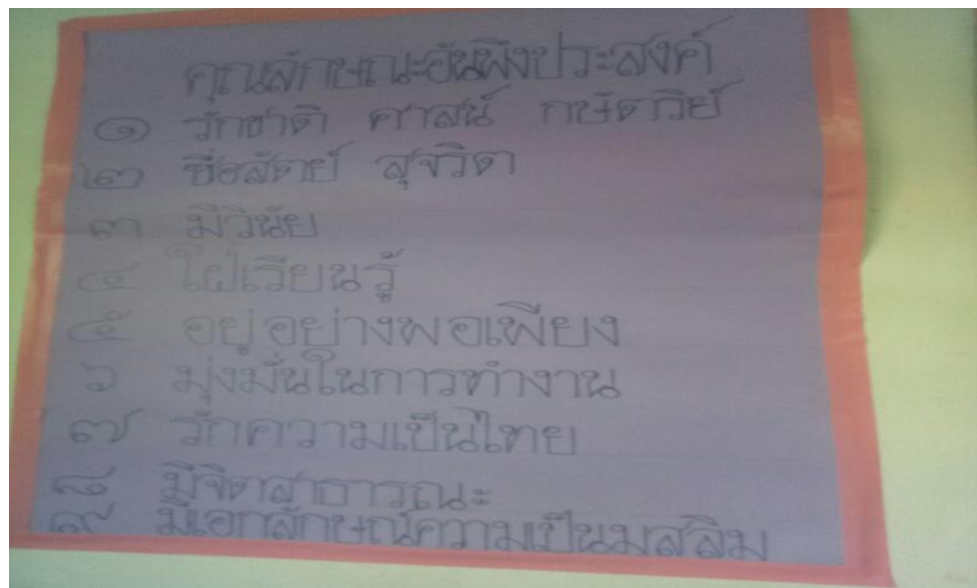 คุณลักษณะอันพึงประสงค์
๑ รักชาติ ศาสน์ กษัตริย์
๒ ซื่อสัตย์ สุจริต
๓ มีวินัย
๔ ใฝ่เรียนรู้
๕ อยู่อย่างพอเพียง
๖ มุ่งมั่นในการทำงาน
๗ รักความเป็นไทย
๘ มีจิตสาธารณะ
๙ มีเอกลักษณ์ความเป็นมุสลิม